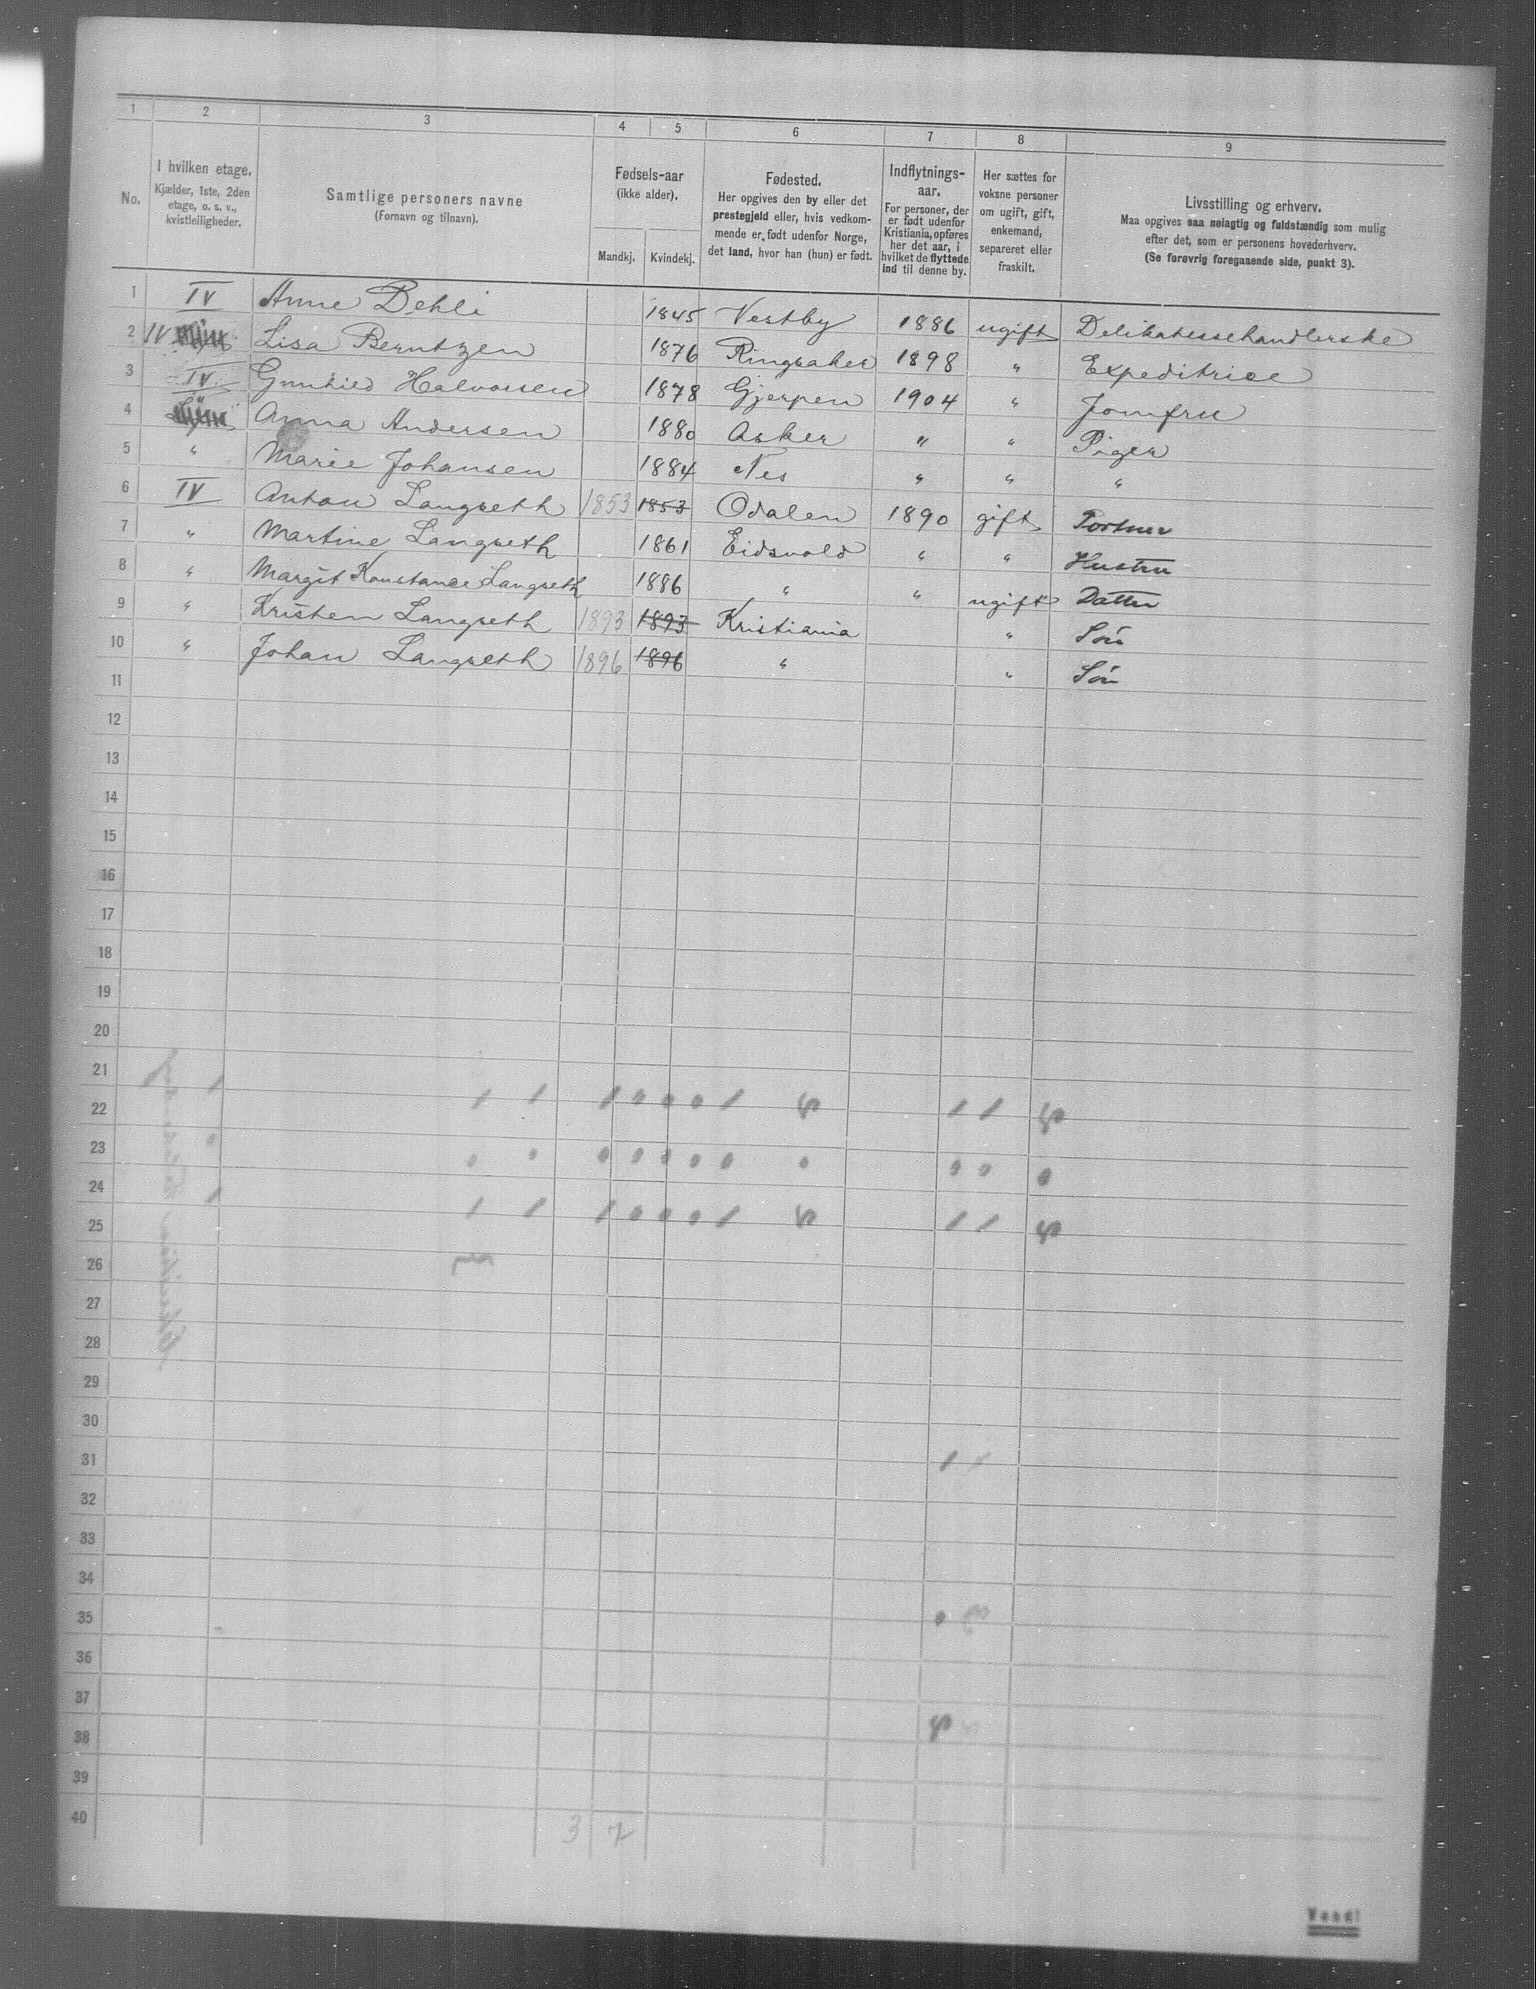 1 2 3 4 5 6 7 8 9
No.
I hvilken etage.
Kjælder, 1ste, 2den
etage, o. s. v.,
kvistleiligheder.
Samtlige personers navne
(Fornavn og tilnavn).
Fødsels-aar
(ikke alder).
Mandkj. Kvindekj.
Fødested.
Her opgives den by eller det
prestegjeld eller, hvis vedkom-
mende er født udenfor Norge,
det land, hvor han (hun) er født.
Indflytnings-
aar.
For personer, der
er født udenfor
Kristiania, opføres
her det aar, i
hvilket de flyttede
ind til denne by.
Her sættes for
voksne personer
om ugift, gift,
enkemand,
separeret eller
fraskilt.
Livsstilling og erhverv.
Maa opgives saa nøiagtig og fuldstændig som mulig
efter det, som er personens hovederhverv.
(Se forøvrig foregaaende side, punkt 3).
1 IV Anne Dehli 1845 Vestby 1886 ugift Delikatessehandlerske
2 IV Lisa Berntzen 1876 Ringsaker 1898 " Expeditrice
3 IV Gunhild Halvorsen 1878 Gjerpen 1904 " Jomfru
4 Anna Andersen 1880 Asker " " Piger
5 " Marie Johansen 1884 Nes " " "
6 IV Anton Langseth 1853 1853 Odalen 1890 gift Portner
7 " Martine Langseth 1861 Eidsvold " " Hustru
8 " Margit Konstance Langseth 1886 " " ugift Datter
9 " Kristen Langseth 1893 1893 Kristiania " Søn
10 " Johan Langseth 1896 1896 " " Søn
11
12
13
14
15
16
17
18
19
20
21
22
23
24
25
26
27
28
29
30
31
32
33
34
35
36
37
38
39
40
3 7
Vend!